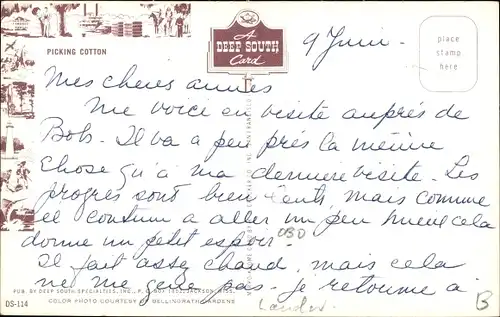 PICKING COTTON
A
DEEP SOUTH
Card
place
stamp
here
9 Juin.
Mes chères amies
Me voici en visite auprés de
Bob. Il va a peu prés la même
chose qu'à ma derniere visite. Les
progres sont bien lents, mais comme
il continu a aller un peu mieux cela
donne un petit espoir.
OBO
Il fait assez chaud, mais cela
ne me gene pas. Je retourne à
PUB. BY DEEP SOUTH SPECIALTIES, INC., P. O. BOX JACKSON, MISS.
DS-114
COLOR PHOTO COURTESY OF BELLINGRATH GARDENS
B